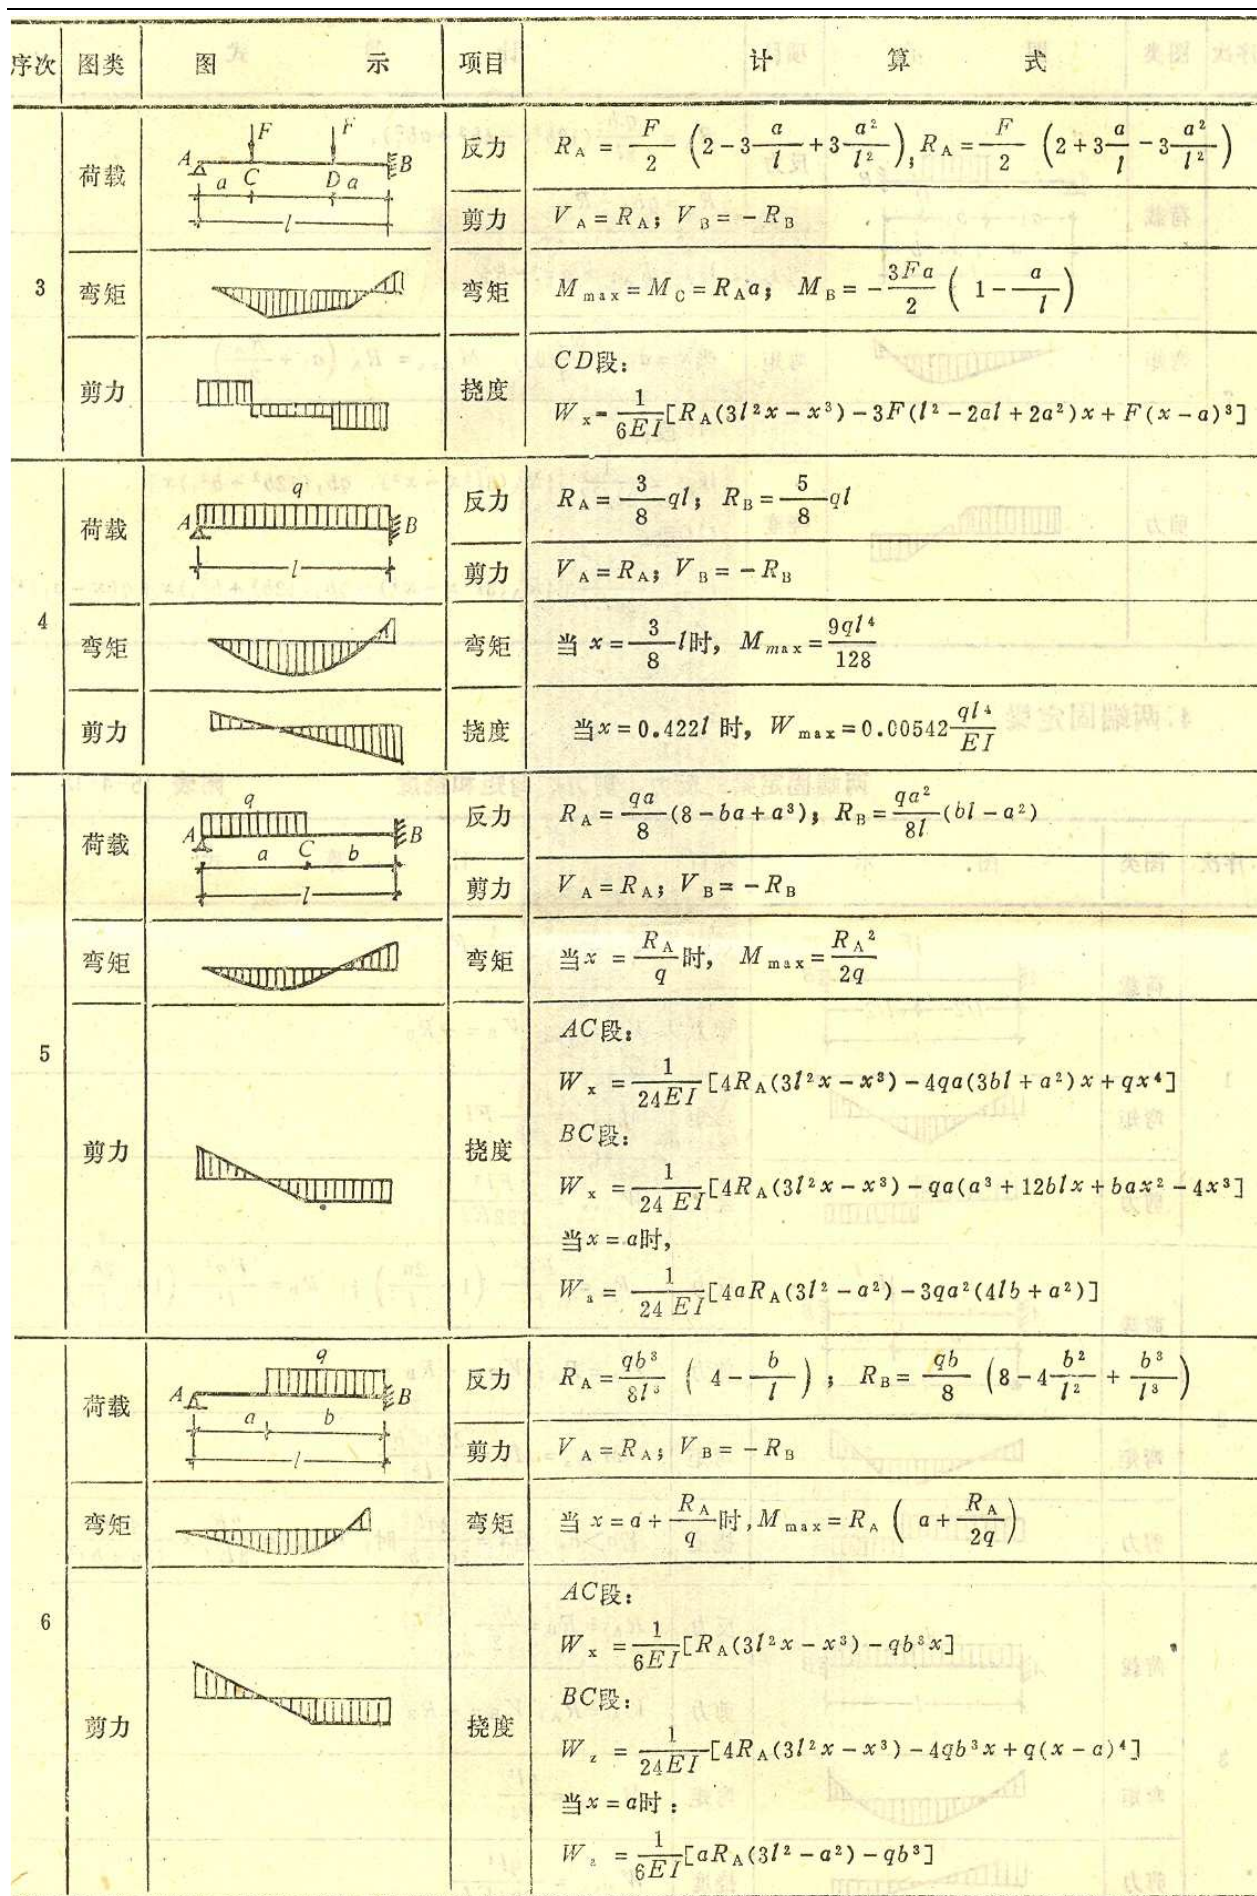 序次 图类 图 示 项目 计 算 式
3
荷载
F F
A B
a C D a
l
反力 R_A = F/2 (2 - 3 a/l + 3 a²/l²), R_A = F/2 (2 + 3 a/l - 3 a²/l²)
剪力 V_A = R_A; V_B = -R_B
弯矩 弯矩 M_max = M_C = R_A a; M_B = -3Fa/2 (1 - a/l)
剪力 挠度 CD段:
W_x = 1/6EI [R_A(3l²x - x³) - 3F(l² - 2al + 2a²)x + F(x - a)³]
4
荷载
q
A B
l
反力 R_A = 3/8 ql; R_B = 5/8 ql
剪力 V_A = R_A; V_B = -R_B
弯矩 弯矩 当 x = 3/8 l时, M_max = 9ql⁴/128
剪力 挠度 当x = 0.422l 时, W_max = 0.00542 ql⁴/EI
5
荷载
q
A B
a C b
l
反力 R_A = qa/8 (8 - ba + a³); R_B = qa²/8l (bl - a²)
剪力 V_A = R_A; V_B = -R_B
弯矩 弯矩 当x = R_A/q 时, M_max = R_A²/2q
剪力 挠度 AC段:
W_x = 1/24EI [4R_A(3l²x - x³) - 4qa(3bl + a²)x + qx⁴]
BC段:
W_x = 1/24 EI [4R_A(3l²x - x³) - qa(a³ + 12blx + bax² - 4x³]
当x = a时,
W_a = 1/24 EI [4aR_A(3l² - a²) - 3qa²(4lb + a²)]
6
荷载
q
A B
a b
l
反力 R_A = qb³/8l³ (4 - b/l); R_B = qb/8 (8 - 4 b²/l² + b³/l³)
剪力 V_A = R_A; V_B = -R_B
弯矩 弯矩 当 x = a + R_A/q 时, M_max = R_A (a + R_A/2q)
剪力 挠度 AC段:
W_x = 1/6EI [R_A(3l²x - x³) - qb³x]
BC段:
W_z = 1/24EI [4R_A(3l²x - x³) - 4qb³x + q(x - a)⁴]
当x = a时:
W_a = 1/6EI [aR_A(3l² - a²) - qb³]